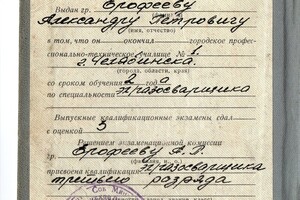 Выдан гр. Ерофееву
Александру Петровичу
(имя, отчество)
в том, что он окончил городское профес-
сионально-техническое училище № 1
г. Челябинска
(города, области, края)
со сроком обучения 2 года
по специальности газосварщика
Выпускные квалификационные экзамены сдал
с оценкой 3
Решением экзаменационной комиссии
Ерофееву А. П.
(фамилия, и., о.)
присвоена квалификация газосварщика
третьего разряда